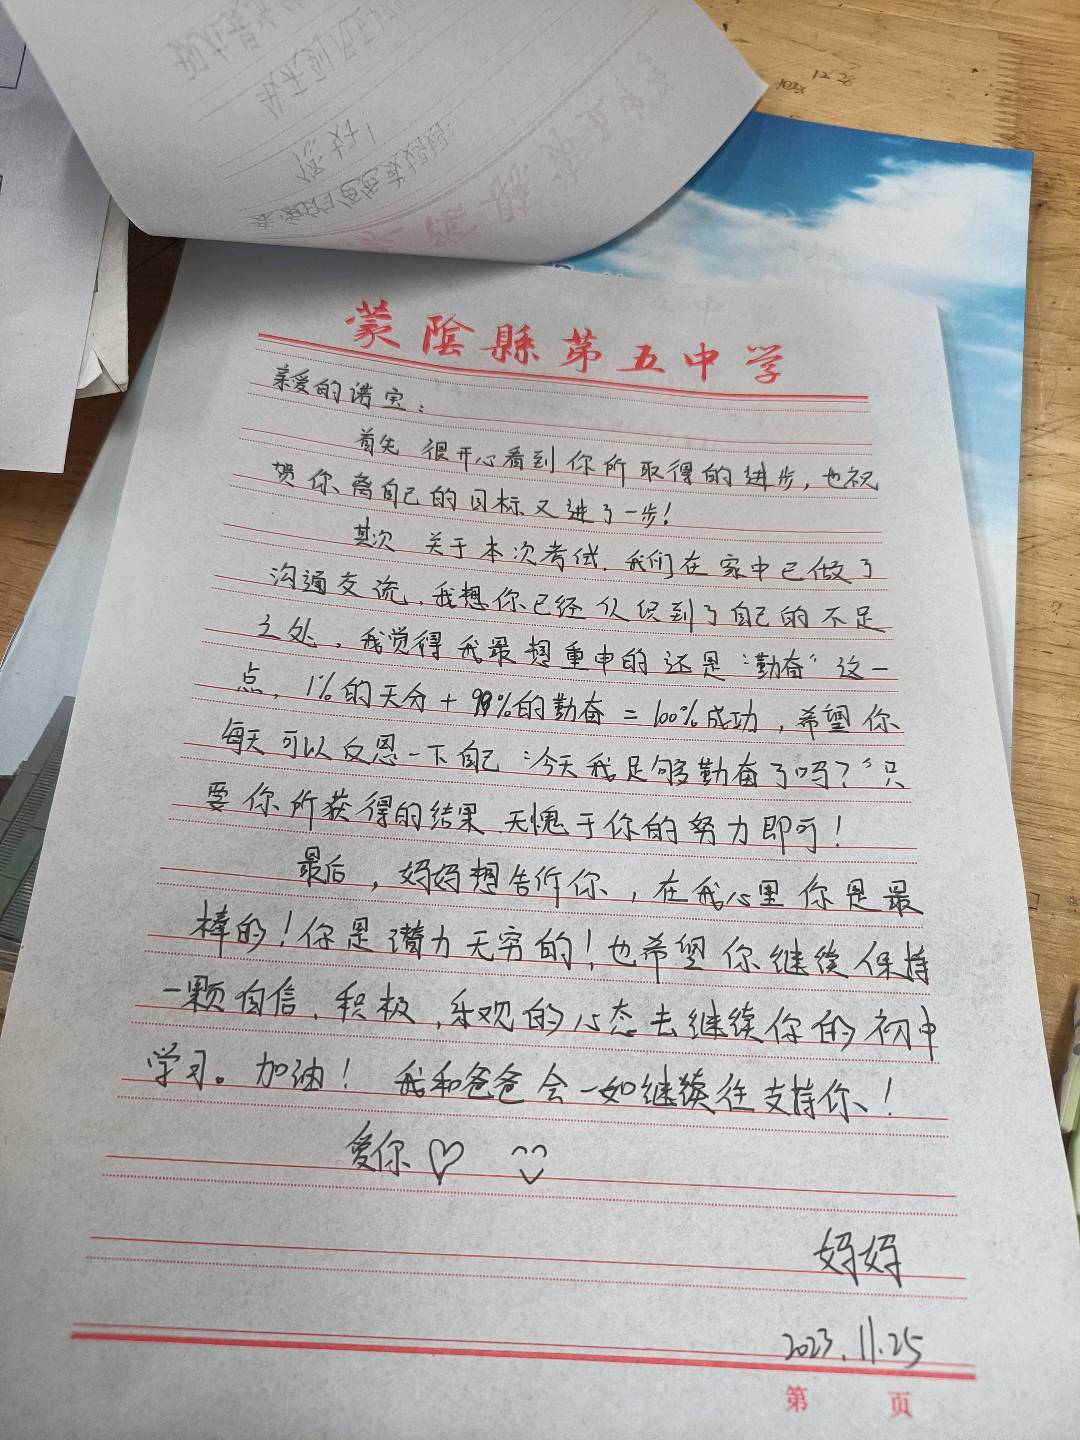 蒙陰縣第五中学
亲爱的诺宝：
首先 很开心看到你所取得的进步，也祝
贺你离自己的目标又进了一步！
其次 关于本次考试，我们在家中已做了
沟通交流，我想你已经认识到了自己的不足
之处，我觉得我最想重申的还是“勤奋”这一
点，1%的天分＋99%的勤奋＝100%成功，希望你
每天可以反思一下自己“今天我足够勤奋了吗？”只
要你所获得的结果、无愧于你的努力即可！
最后，妈妈想告诉你，在我心里你是最
棒的！你是潜力无穷的！也希望你继续保持
一颗自信、积极、乐观的心态去继续你的初中
学习。加油！ 我和爸爸会一如继续往支持你！
爱你
妈妈
2023.11.25
第 页